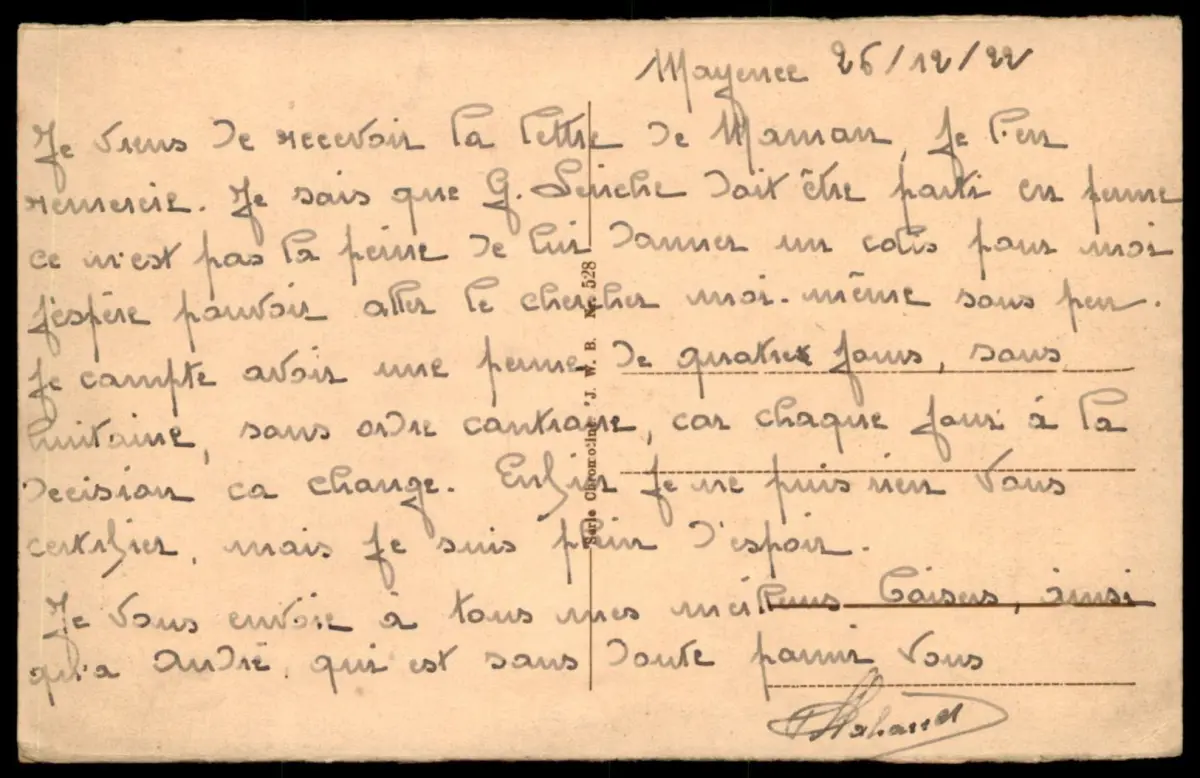 Mayence 26/12/22
Je viens de recevoir la lettre de Maman, Je l'en
remercie. Je sais que G. doit être parti en perme
ce n'est pas la peine de lui donner un colis pour moi
J'espère pouvoir aller le chercher moi-même sous peu.
Je compte avoir une perme de quatre jours, sous
huitaine, sans ordre contraire, car chaque jour à la
decision ca change. Enfin je ne puis rien vous
certifier, mais je suis plein d'espoir.
Je vous envoie à tous mes meilleurs baisers, ainsi
qu'a André, qui est sans doute parmi vous
Serie Chromoline "J. W. B. Nr. 528